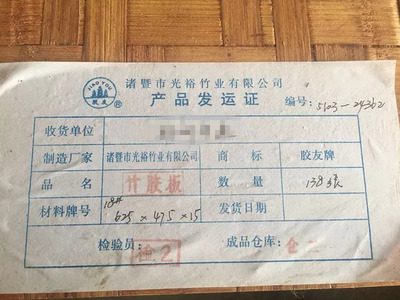 JIAO YOU
胶友
®
诸暨市光裕竹业有限公司
产品发运证
编号: 5123-24362
收货单位
制造厂家 诸暨市光裕竹业有限公司 商标 胶友牌
品名 竹胶板 数量 138张
材料牌号 18# 625×475×15 发货日期
检验员: 检2 成品仓库: 仓